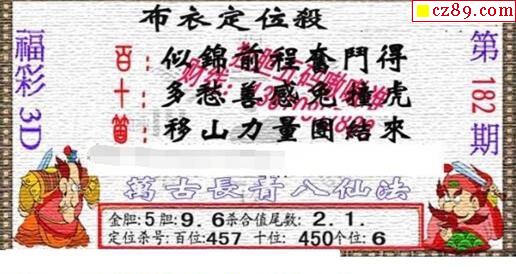 cz89.com
布衣定位殺
福彩3D
第182期
百：似錦前程奮鬥得
十：多愁善感兔撞虎
箇：移山力量團結來
萬古長青八仙法
金胆:5胆:9.6杀合值尾数:2.1.
定位杀号:百位:457 十位:450个位:6